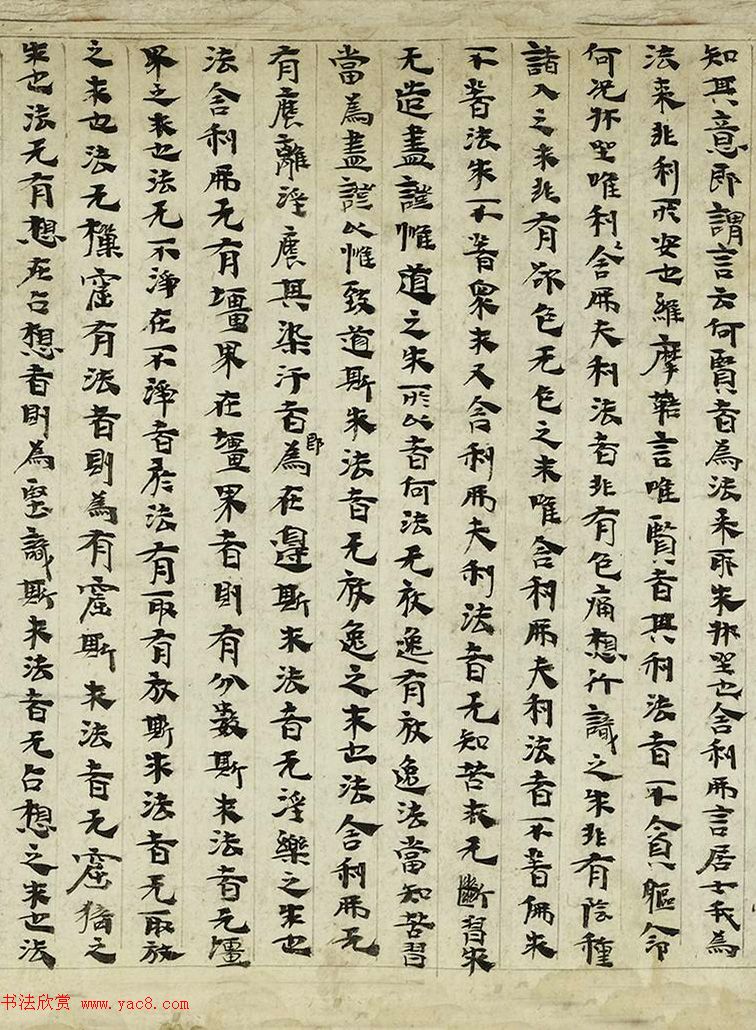 知其意即謂言云何賢者為法来耶求牀坐也舍利弗言居士我為
法来非利所安也維摩詰言唯賢者其利法者不貪軀命
何況牀坐唯利舍弗夫利法者非有色痛想行識之求非有陰種
諸入之求非有欲色无色之求唯舍利弗夫利法者不著佛求
不著法求不著衆求又舍利弗夫利法者无知苦求无斷習求
无造盡證惟道之求所以者何法无放逸有放逸法當知苦習
當為盡證以惟致道斯求法者无放逸之求也法舍利弗无
有塵離淫塵其染汙者即為在邊斯求法者无淫樂之求也
法舍利弗无有壃界在壃界者則有分數斯求法者无壃
界之求也法无不淨在不淨者於法有取有放斯求法者无取放
之求也法无樔窟有法者則為有窟斯求法者无窟猗之
求也法无有想在占想者則為堅識斯求法者无占想之求也法
书法欣赏 www.yac8.com